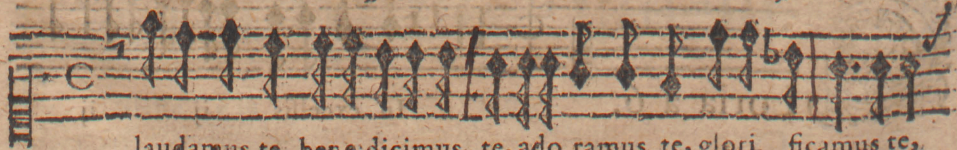 laudamus te, bene dicimus te, ado ramus te, glori ficamus te,